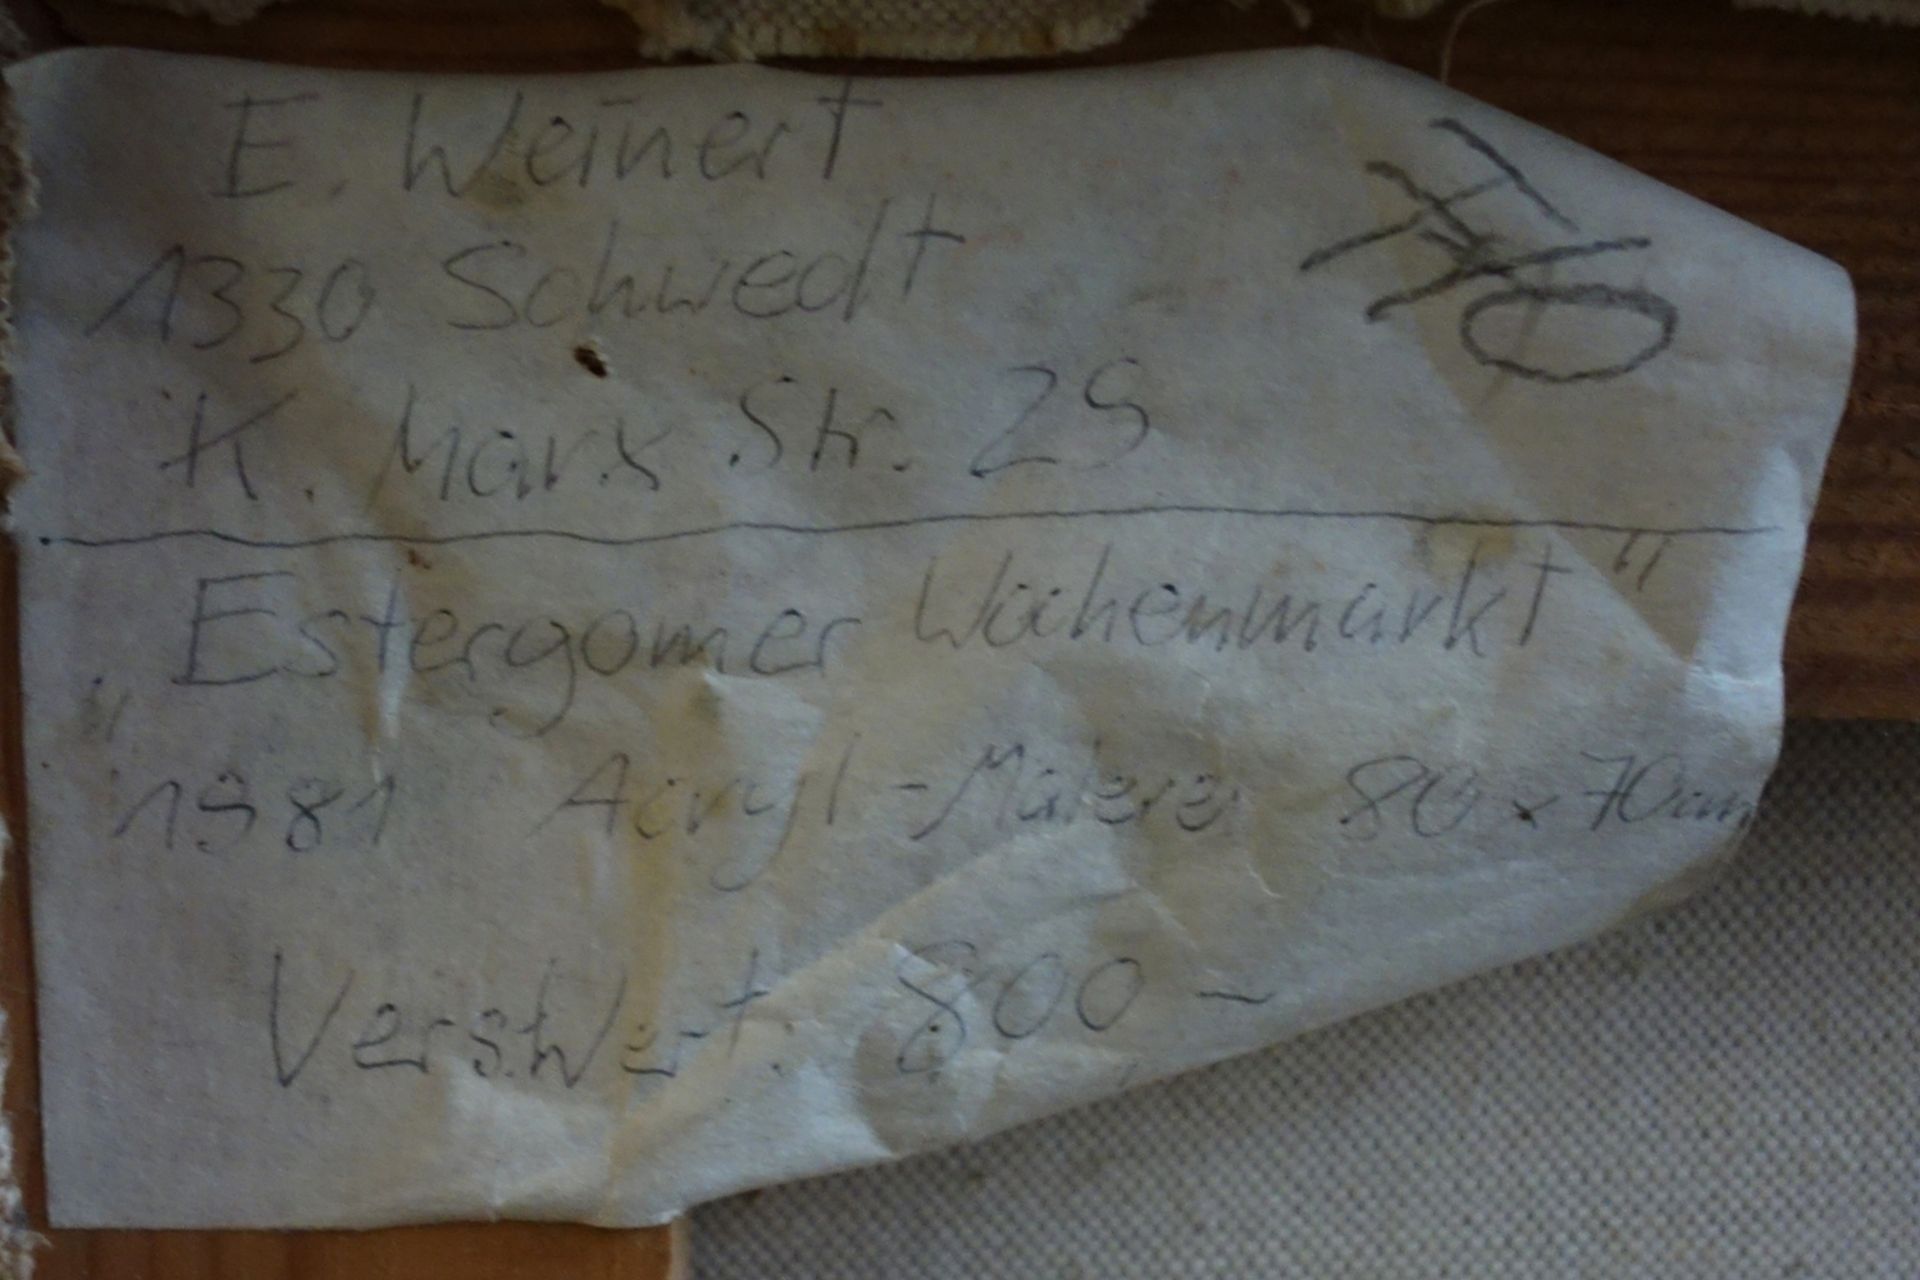 E. Weinert
1330 Schwedt
K. Marx Str. 29
"Estergomer Wochenmarkt"
1981 Acryl-Malerei 80 x 70cm
Vers.Wert. 800,-